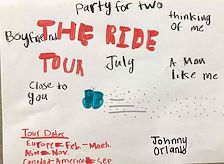 Party for two
thinking
of me
Boyfriend
THE RIDE
TOUR
July
A Man
like me
Close to
you
Tour Dates
Europe = Feb. - March.
Asia = Nov.
America = Sep
Johnny
Orland